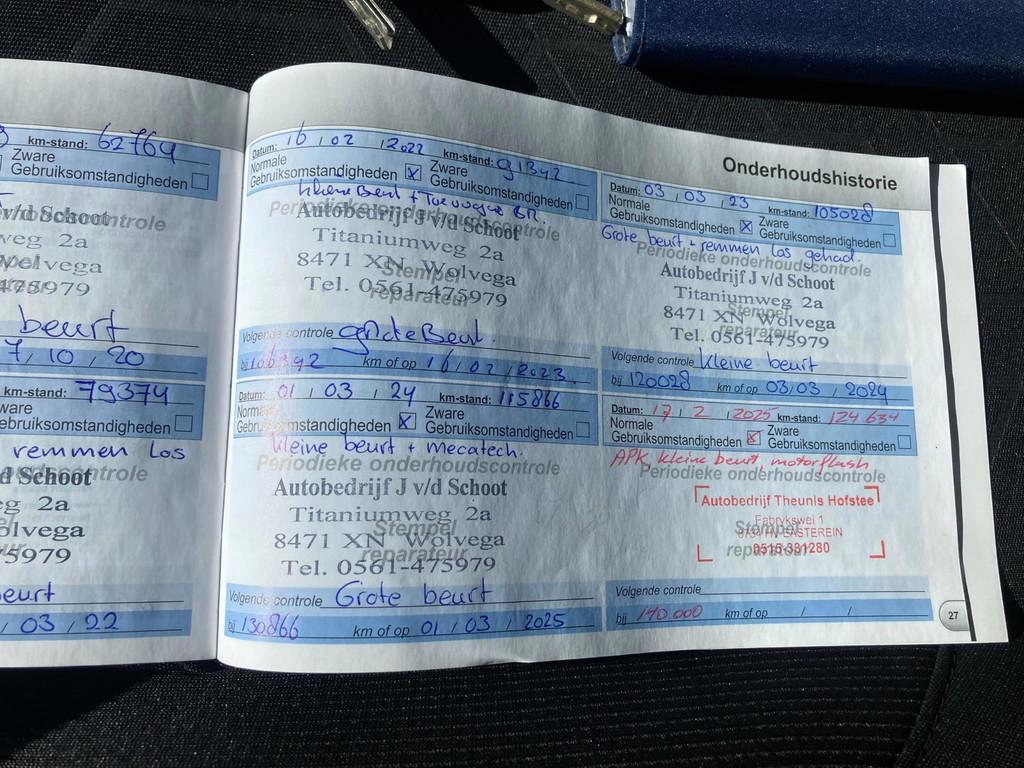 km-stand: 62764
Zware
Gebruiksomstandigheden
v/d Schoot
weg 2a
Wolvega
475979
beurt
7 / 10 / 20
km-stand: 79374
ware
ebruiksomstandigheden
remmen los
d Schoot
eg 2a
olvega
5979
eurt
/ 03 / 22
Onderhoudshistorie
Datum: 16 / 02 / 2022 km-stand: 91342
Normale
Gebruiksomstandigheden
Zware
Gebruiksomstandigheden
Kleine Beurt +
Periodieke onderhoudscontrole
Autobedrijf J v/d Schoot
Titaniumweg 2a
8471 XN Wolvega
Stempel
Tel. 0561-475979
reparateur
Volgende controle grote Beurt
bij 106392 km of op 16 / 02 / 2023
Datum: 01 / 03 / 24 km-stand: 115866
Normale
Gebruiksomstandigheden
Zware
Gebruiksomstandigheden
kleine beurt + mecatech.
Periodieke onderhoudscontrole
Autobedrijf J v/d Schoot
Titaniumweg 2a
Stempel
8471 XN Wolvega
reparateur
Tel. 0561-475979
Volgende controle Grote beurt
bij 130866 km of op 01 / 03 / 2025
Datum: 03 / 03 / 23 km-stand: 105028
Normale
Gebruiksomstandigheden
Zware
Gebruiksomstandigheden
Grote beurt + remmen los gehad.
Periodieke onderhoudscontrole
Autobedrijf J v/d Schoot
Titaniumweg 2a
Stempel
8471 XN Wolvega
reparateur
Tel. 0561-475979
Volgende controle Kleine beurt
bij 120028 km of op 03 / 03 / 2024
Datum: 17 / 2 / 2025 km-stand: 124634
Normale
Gebruiksomstandigheden
Zware
Gebruiksomstandigheden
APK kleine beurt motorflush
Periodieke onderhoudscontrole
Autobedrijf Theunis Hofstee
Fabrykswei 1
Stempel
EASTEREIN
reparateur
0515-331280
Volgende controle
bij 140.000 km of op / /
27